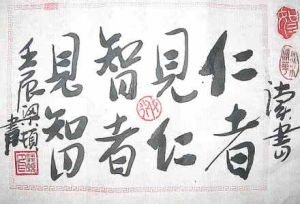 读书
仁者
見仁
智者
見智
壬辰梁
書